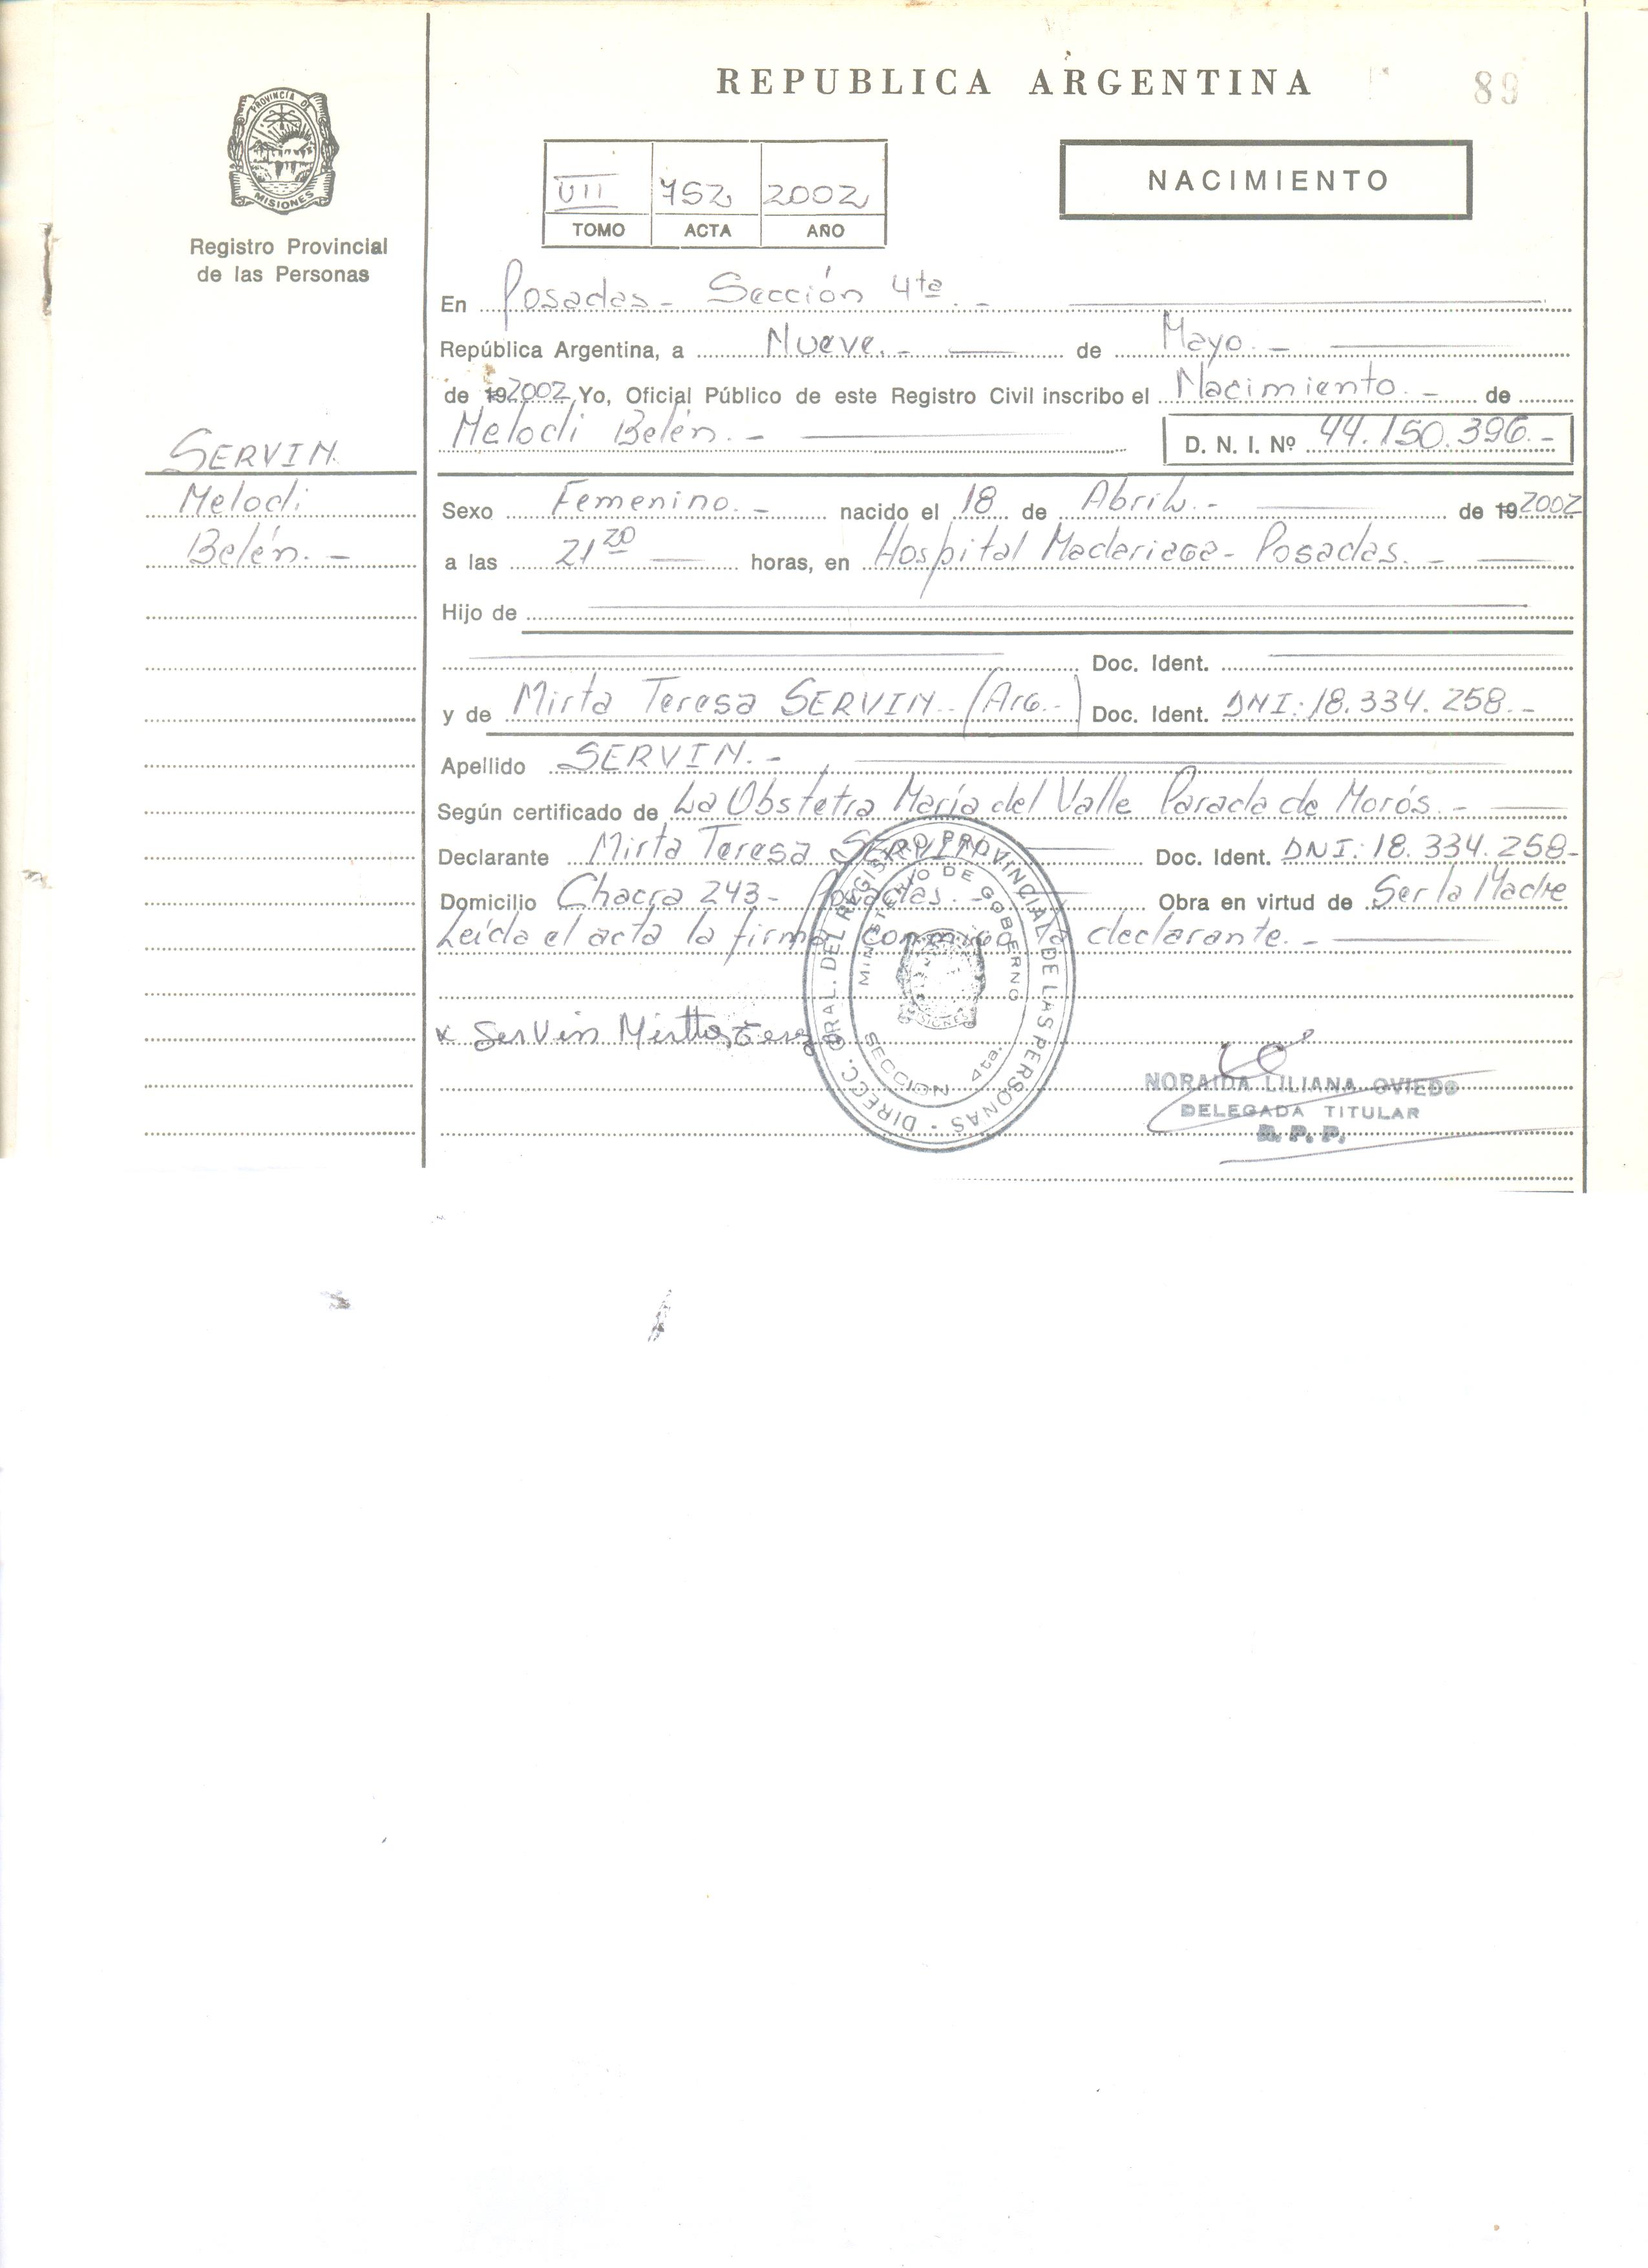 REPUBLICA ARGENTINA
89
PROVINCIA D
MISIONES
Registro Provincial
de las Personas
VII 752 2002
TOMO ACTA AÑO
NACIMIENTO
En Posadas - Sección 4ta. -
República Argentina, a Nueve. - de Mayo. -
de 192002 Yo, Oficial Público de este Registro Civil inscribo el Nacimiento. - de
Melodi Belén. - D. N. I. Nº 44.150.396. -
SERVIN
Melodi
Belén. -
Sexo Femenino. - nacido el 18 de Abril. - de 192002
a las 21 20 horas, en Hospital Madariaga - Posadas. -
Hijo de
Doc. Ident.
y de Mirta Teresa SERVIN. (Arg. -) Doc. Ident. DNI: 18.334.258. -
Apellido SERVIN. -
Según certificado de La Obstetra María del Valle Parada de Morós. -
Declarante Mirta Teresa SERVIN Doc. Ident. DNI: 18.334.258 -
Domicilio Chacra 243 - Posadas. - Obra en virtud de Ser la Madre
Leída el acta la firma conmigo la declarante. -
x Servin Mirtha Tereza
DIRECC. GRAL. DEL REGISTRO PROVINCIAL DE LAS PERSONAS -
MINISTERIO DE GOBIERNO
MISIONES
SECCION 4ta.
NORAIDA LILIANA OVIEDO
DELEGADA TITULAR
R. P. P.